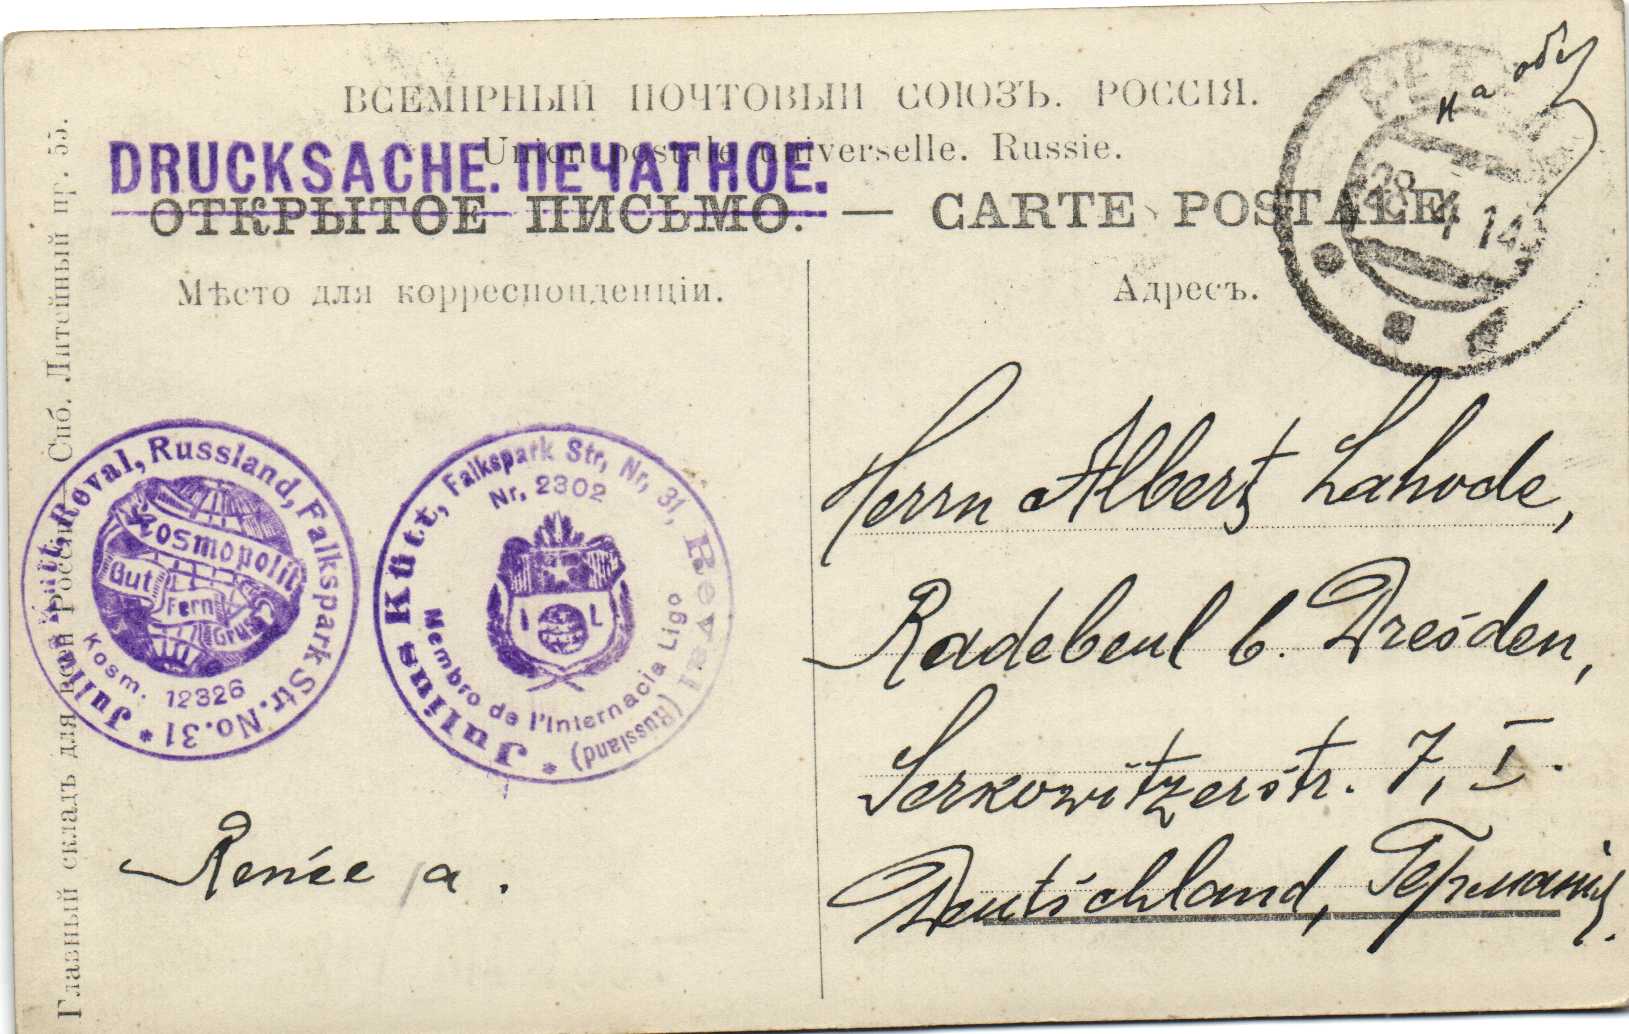 ВСЕМІРНЫЙ ПОЧТОВЫЙ СОЮЗЪ. РОССІЯ.
Union postale universelle. Russie.
DRUCKSACHE. ПЕЧАТНОЕ.
ОТКРЫТОЕ ПИСЬМО. — CARTE POSTALE.
28 4 14
на об
Мѣсто для корреспонденціи.
Адресъ.
Главный складъ для всей Россіи — Спб. Литейный пр. 55.
* Julius Kütt, Reval, Russland, Falkspark Str. No. 31
Kosmopolit
Gut
Fern
Gruss
Kosm. 12326
* Julius Kütt, Falkspark Str, Nr, 31, Reval (Russland)
Nr, 2302
I L
Membro de l'Internacia Ligo
Herrn Albert Lahode,
Radebeul b. Dresden,
Serkowitzerstr. 7, I.
Deutschland, Германія.
a.